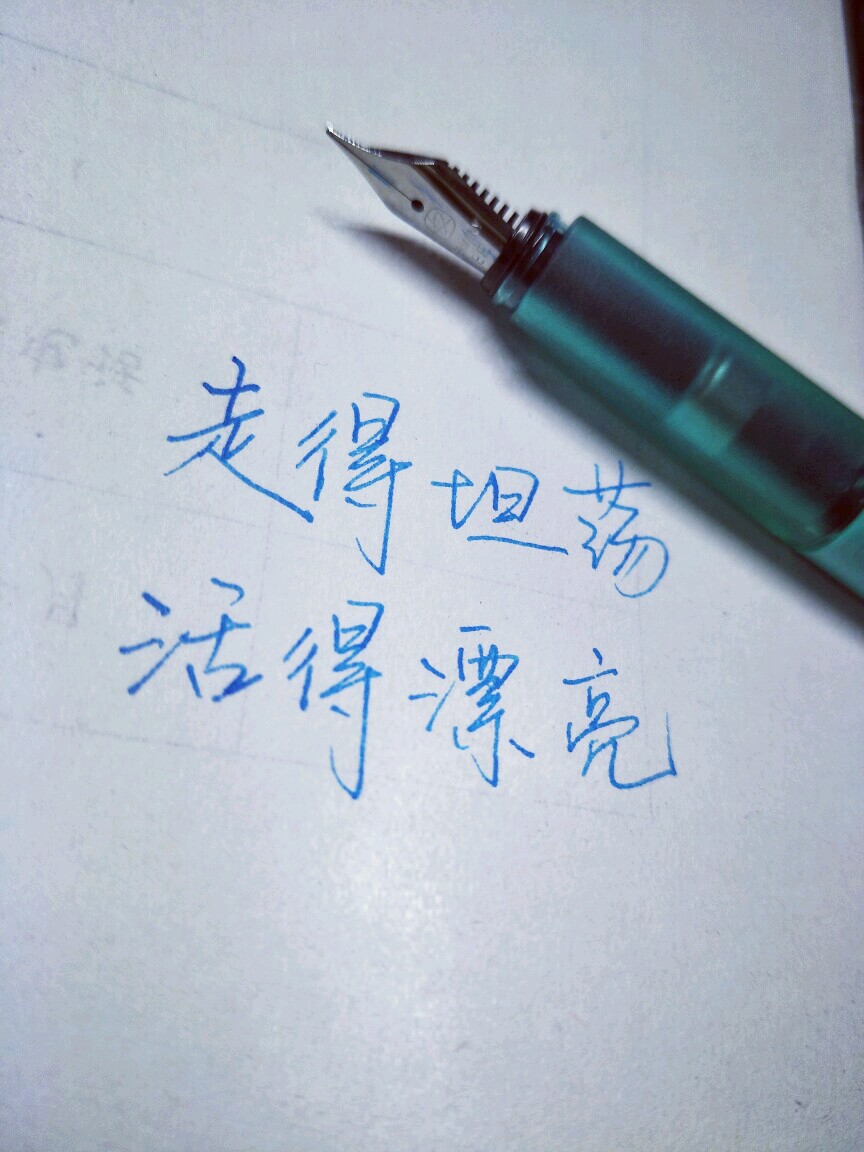 走得坦荡
活得漂亮